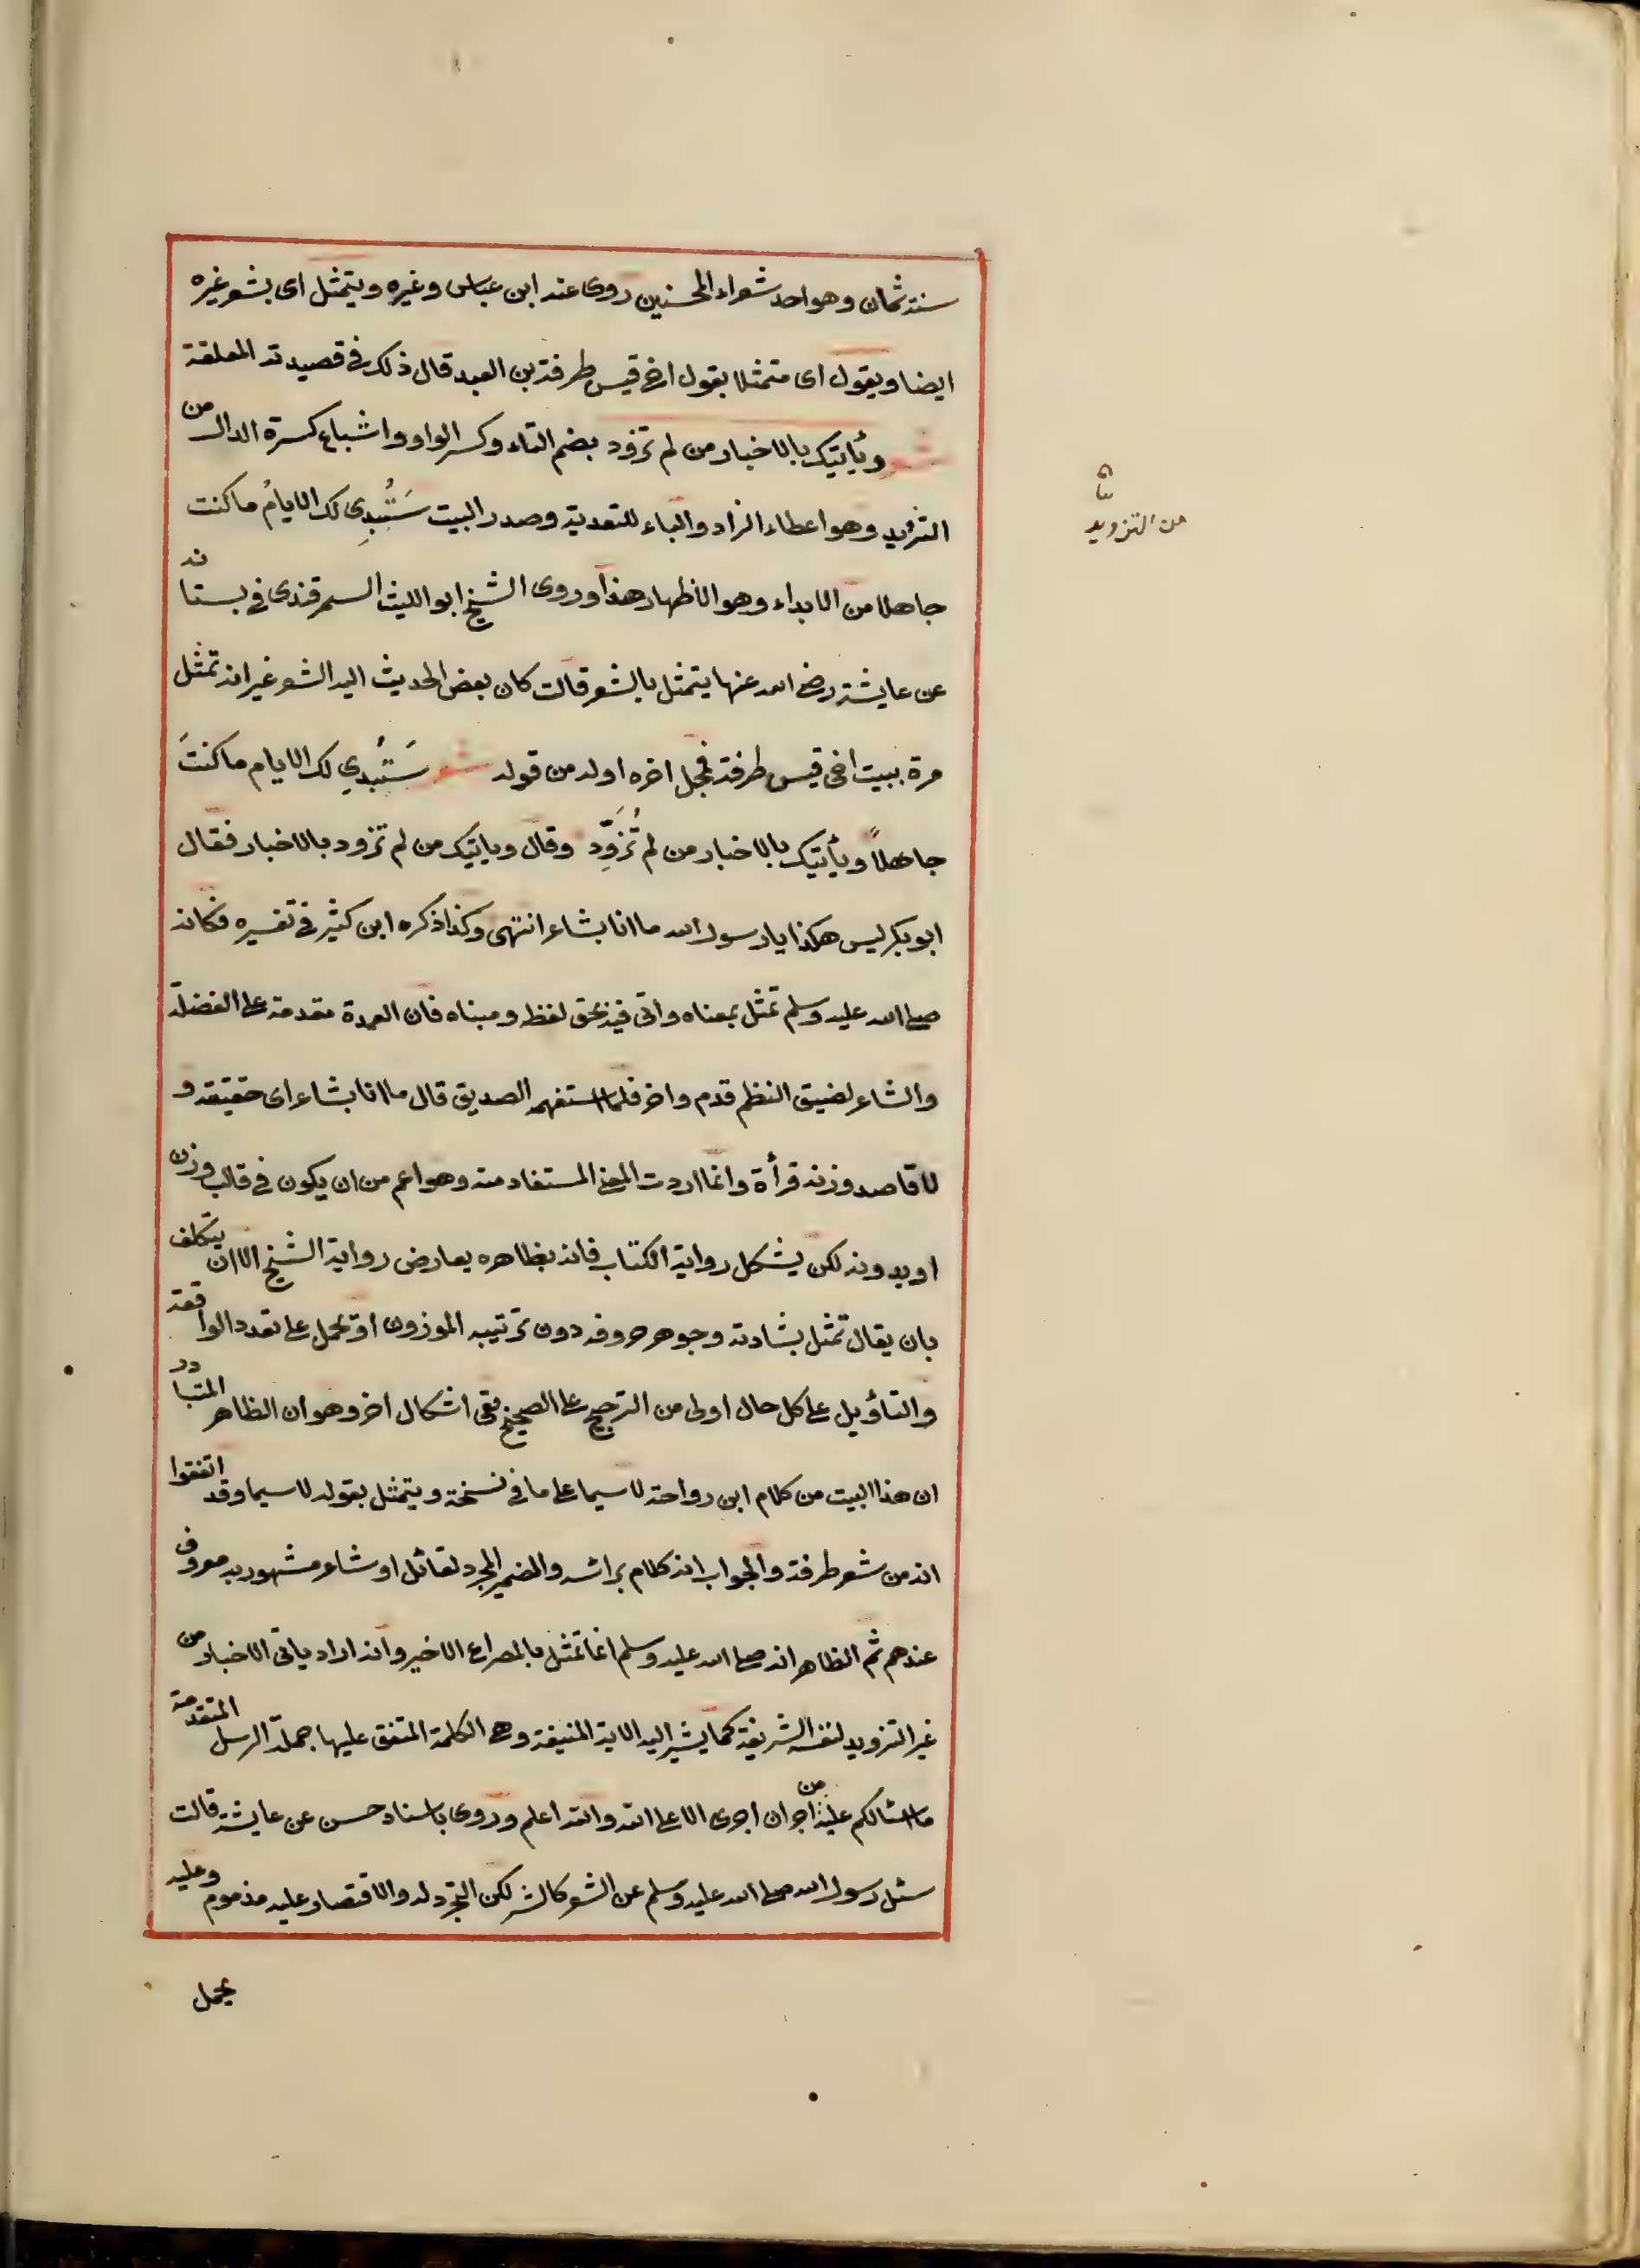 سنة ثمان وهو احد شعراء المحسنين روى عنه ابن عباس وغيره ويتمثل اى بشعر غيره
ايضا ويقول اى متمثلا بقول اخى قيس طرفة بن العبد قال ذلك فى قصيدته المعلقة
شعر ويأتيك بالاخبار من لم تزود بضم التاء وكسر الواو واشباع كسرة الدال من
التزيد وهو اعطاء الزاد والباء للتعدية وصدر البيت سَتُبدِى لك الايامُ ما كنت
جاهلا من الابداء وهو الاظهار هذا وروى الشيخ ابو الليث السمرقندى فى بستانه
عن عايشة رضى الله عنها يتمثل بالشعر قالت كان بعض الحديث اليه الشعر غير انه تمثل
مرة ببيت اخى قيس طرفة فجعل اخره اوله من قوله شعر سَتُبدِي لك الايام ما كنتَ
جاهلاً ويأتيك بالاخبار من لم تُزَوِّد وقال وياتيك من لم تزود بالاخبار فقال
ابو بكر ليس هكذا يا رسول الله ما انا بشاعر انتهى وكذا ذكره ابن كثير فى تفسيره فكانه
صلى الله عليه وسلم تمثل بمعناه واتى فيه بحق لفظه ومبناه فان العمدة مقدمة على الفضلة
والشاعر لضيق النظم قدم واخر فلما استفهمه الصديق قال ما انا بشاعر اى حقيقة و
لا قاصد وزنه قرأة وانما اردت المعنى المستفاد منه وهو اعم من ان يكون فى قالب وزن
او بدونه لكن يشكل رواية الكتاب فانه بظاهره يعارض رواية الشيخ الا ان يتكلف
بان يقال تمثل بشادته وجوهر حروفه دون ترتيبه الموزون او يحمل على تعدد الواقعة
والتأويل على كل حال اولى من الترجيح على الصحيح بقى اشكال اخر وهو ان الظاهر المتبادر
ان هذا البيت من كلام ابن رواحة لا سيما على ما فى نسخة ويتمثل بقوله لا سيما وقد اتفقوا
انه من شعر طرفة والجواب انه كلام برائسه والضمير المجرد لقائل او شاعر مشهور به معروف
عندهم ثم الظاهر انه صلى الله عليه وسلم انما تمثل بالمصراع الاخير وانه اراد ياتى الاخبار من
غير التزويد لنفسه الشريفة كما يشير اليه الاية المنيفة وهى الكلمة المتفق عليها جملة الرسل المتقدمة
ما اسالكم عليه من اجر ان اجرى الا على الله والله اعلم وروى باسناد حسن عن عايشة قالت
سئل رسول الله صلى الله عليه وسلم عن الشعر كالنثر لكن التجرد له والاقتصار عليه مذموم وعليه
يحمل
من التزويد